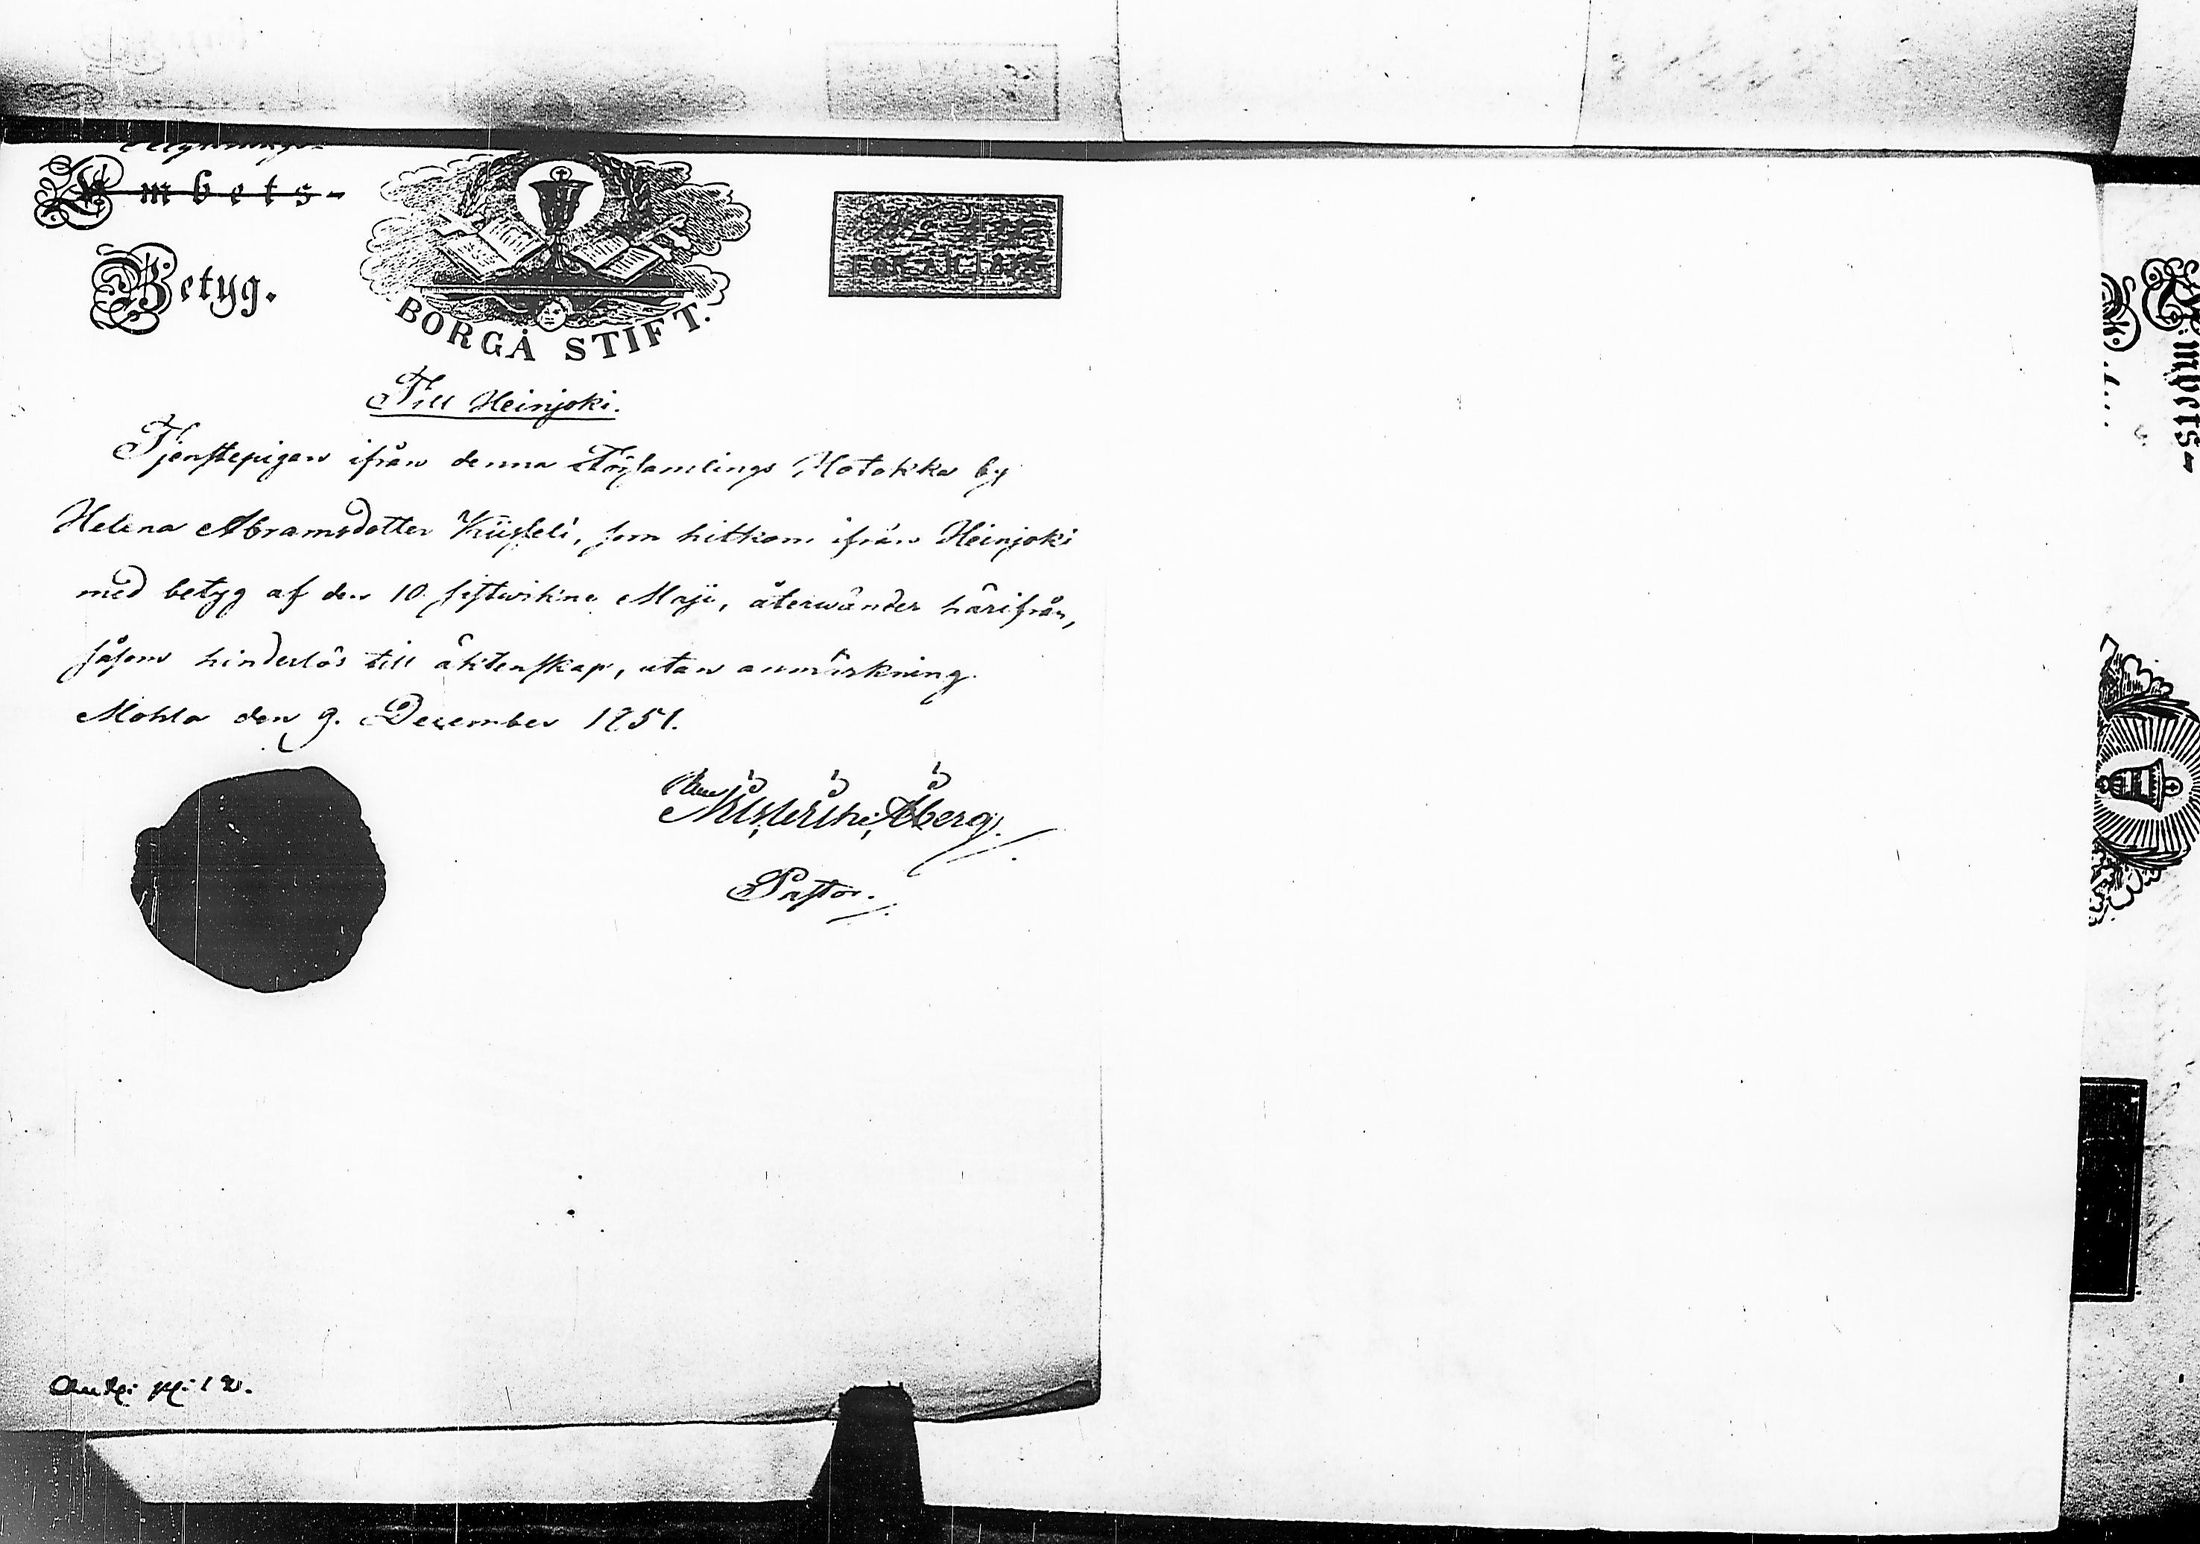 Ambets-
Betyg.
BORGÅ STIFT.
Till Heinjoki.
Tjenstepigan ifrån denna Församlings Kotokka by
Helena Abramsdotter Kiiskeli, som hitkom ifrån Heinjoki
med betyg af den 10 sistwikne Maji, återwänder härifrån,
såsom hinderlös till äktenskap, utan anmärkning.
Mohla den 9. December 1851.
Åberg.
Pastor.
Embets-